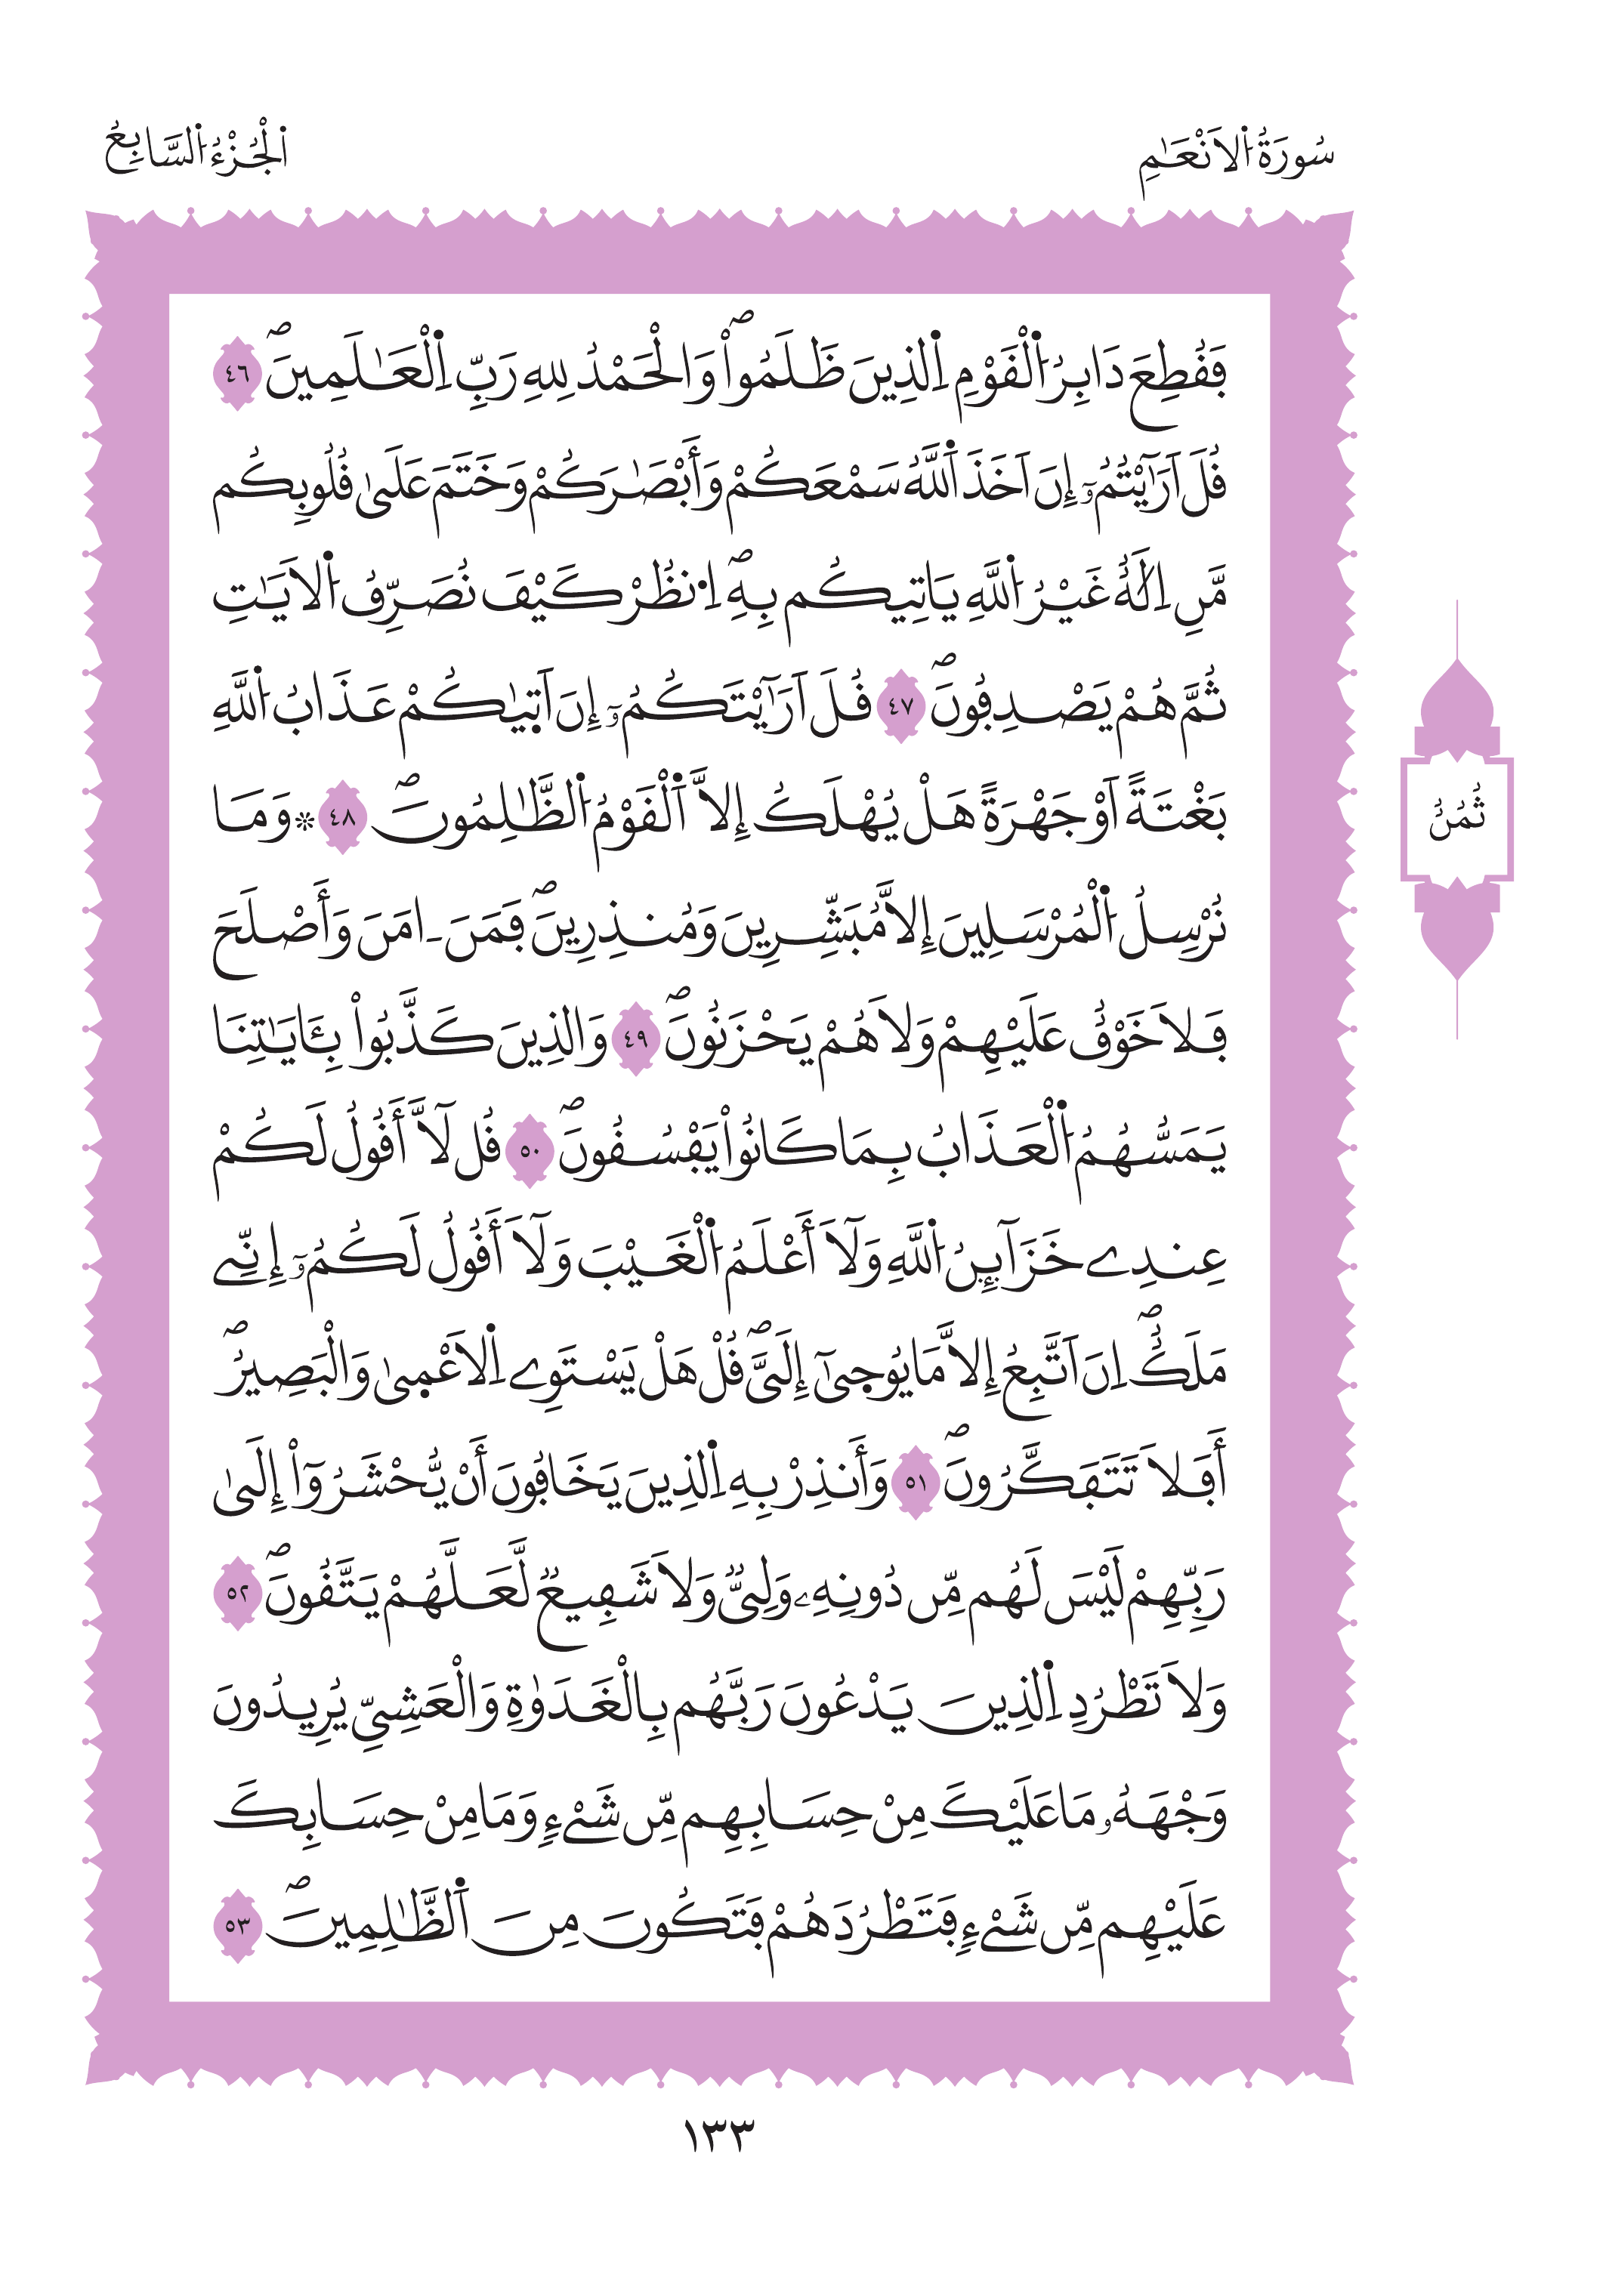 سُورَةُ الَانْعَٰمِ
الْجُزْءُ السَّابِعُ
فَقُطِعَ دَابِرُ الْقَوْمِ اِلذِينَ ظَلَمُواْۖ وَالْحَمْدُ لِلهِ رَبِّ اِلْعَٰلَمِينَۖ ٤٦
قُلَ اَرَٰٓيْتُمُۥٓ إِنَ اَخَذَ اَللَّهُ سَمْعَكُمْ وَأَبْصَٰرَكُمْ وَخَتَمَ عَلَىٰ قُلُوبِكُم
مَّنِ اِلَٰهٌ غَيْرُ اُللَّهِ يَاتِيكُم بِهِۖ اِ۟نظُرْ كَيْفَ نُصَرِّفُ اُلَايَٰتِ
ثُمَّ هُمْ يَصْدِفُونَۖ ٤٧ قُلَ اَرَٰٓيْتَكُمُۥٓ إِنَ اَتٜيٰكُمْ عَذَابُ اُللَّهِ
بَغْتَةً اَوْ جَهْرَةً هَلْ يُهْلَكُ إِلاَّ اَلْقَوْمُ اُلظَّٰلِمُونَۖ ٤٨ ۞ وَمَا
نُرْسِلُ اُلْمُرْسَلِينَ إِلاَّ مُبَشِّرِينَ وَمُنذِرِينَۖ فَمَنَ ـ امَنَ وَأَصْلَحَ
فَلاَ خَوْفٌ عَلَيْهِمْ وَلاَ هُمْ يَحْزَنُونَۖ ٤٩ وَالذِينَ كَذَّبُواْ بِـَٔايَٰتِنَا
يَمَسُّهُمُ اُلْعَذَابُ بِمَا كَانُواْ يَفْسُقُونَۖ ٥٠ قُل لَّآ أَقُولُ لَكُمْ
عِندِے خَزَآئِنُ اُللَّهِ وَلَآ أَعْلَمُ اُلْغَيْبَ وَلَآ أَقُولُ لَكُمُۥٓ إِنِّے
مَلَكٌۖ اِنَ اَتَّبِعُ إِلاَّ مَا يُوحٜىٰٓ إِلَىَّۖ قُلْ هَلْ يَسْتَوِے اِلَاعْمٜىٰ وَالْبَصِيرُۖ
أَفَلاَ تَتَفَكَّرُونَۖ ٥١ وَأَنذِرْ بِهِ اِلذِينَ يَخَافُونَ أَنْ يُّحْشَرُوٓاْ إِلَىٰ
رَبِّهِمْ لَيْسَ لَهُم مِّن دُونِهِۦ وَلِىٌّ وَلاَ شَفِيعٌ لَّعَلَّهُمْ يَتَّقُونَۖ ٥٢
وَلاَ تَطْرُدِ اِلذِينَ يَدْعُونَ رَبَّهُم بِالْغَدَوٰةِ وَالْعَشِيِّ يُرِيدُونَ
وَجْهَهُۥ مَا عَلَيْكَ مِنْ حِسَابِهِم مِّن شَےْءٍ وَمَا مِنْ حِسَابِكَ
عَلَيْهِم مِّن شَےْءٍ فَتَطْرُدَهُمْ فَتَكُونَ مِنَ اَلظَّٰلِمِينَۖ ٥٣
ثُمُنٌ
١٣٣